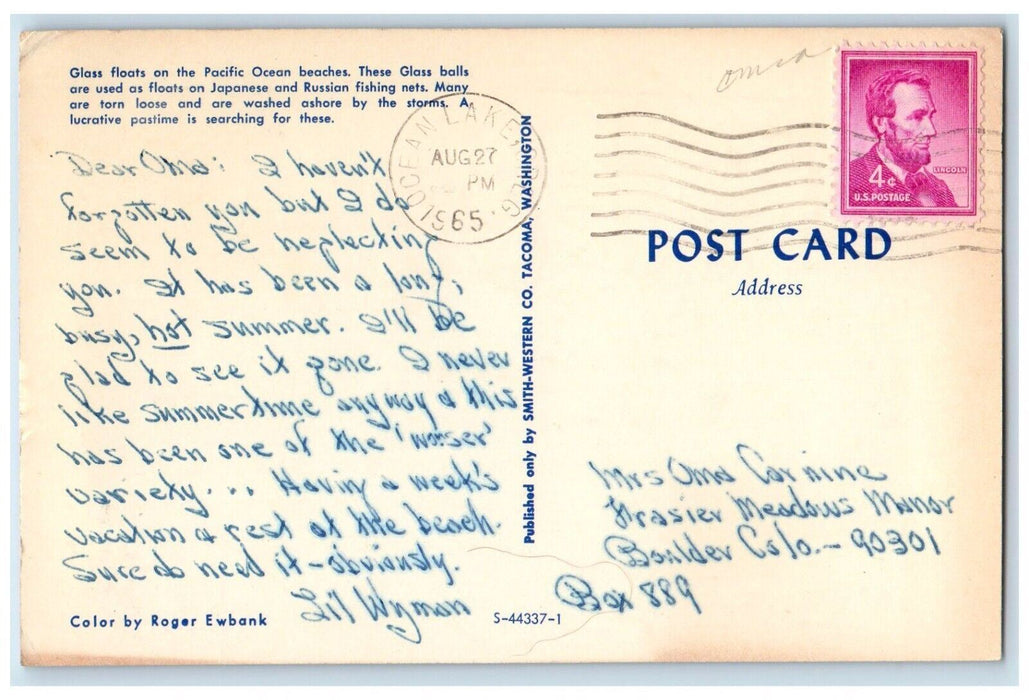 Glass floats on the Pacific Ocean beaches. These Glass balls
are used as floats on Japanese and Russian fishing nets. Many
are torn loose and are washed ashore by the storms. A
lucrative pastime is searching for these.
Dear Oma: I haven't
forgotten you but I do
seem to be neglecting
you. It has been a long,
busy, hot summer. I'll be
glad to see it gone. I never
like summertime anyway & this
has been one of the 'worser'
variety... Having a week's
vacation & rest at the beach.
Sure do need it - obviously.
Lil Wyman
Color by Roger Ewbank
S-44337-1
Published only by SMITH-WESTERN CO. TACOMA, WASHINGTON
OCEANLAKE, OREG.
AUG 27
PM
1965
4¢
LINCOLN
U.S. POSTAGE
POST CARD
Address
Mrs Oma Carnine
Frasier Meadows Manor
Boulder Colo. - 90301
Box 889